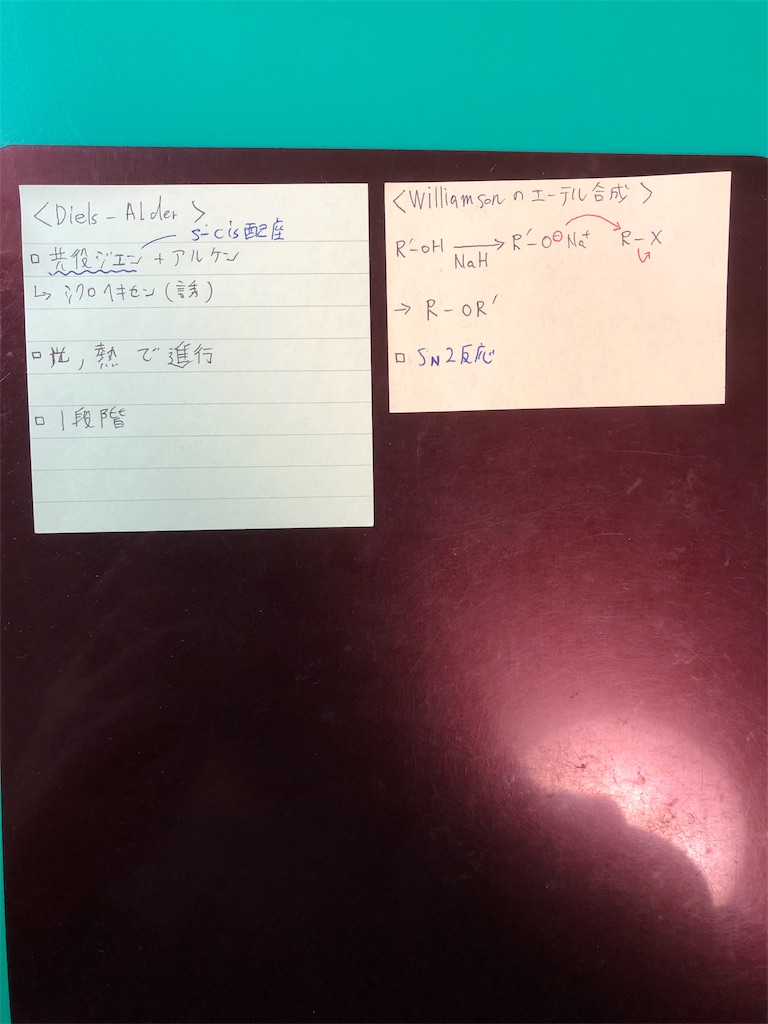 <Diels-Alder>
s-cis配座
□ 共役ジエン + アルケン
↳ シクロヘキセン(誘)
□ 光, 熱 で 進行
□ 1段階
<Williamson の エーテル合成>
R'-OH →NaH R'-O⊖ Na+ R-X
→ R-OR'
□ SN2反応